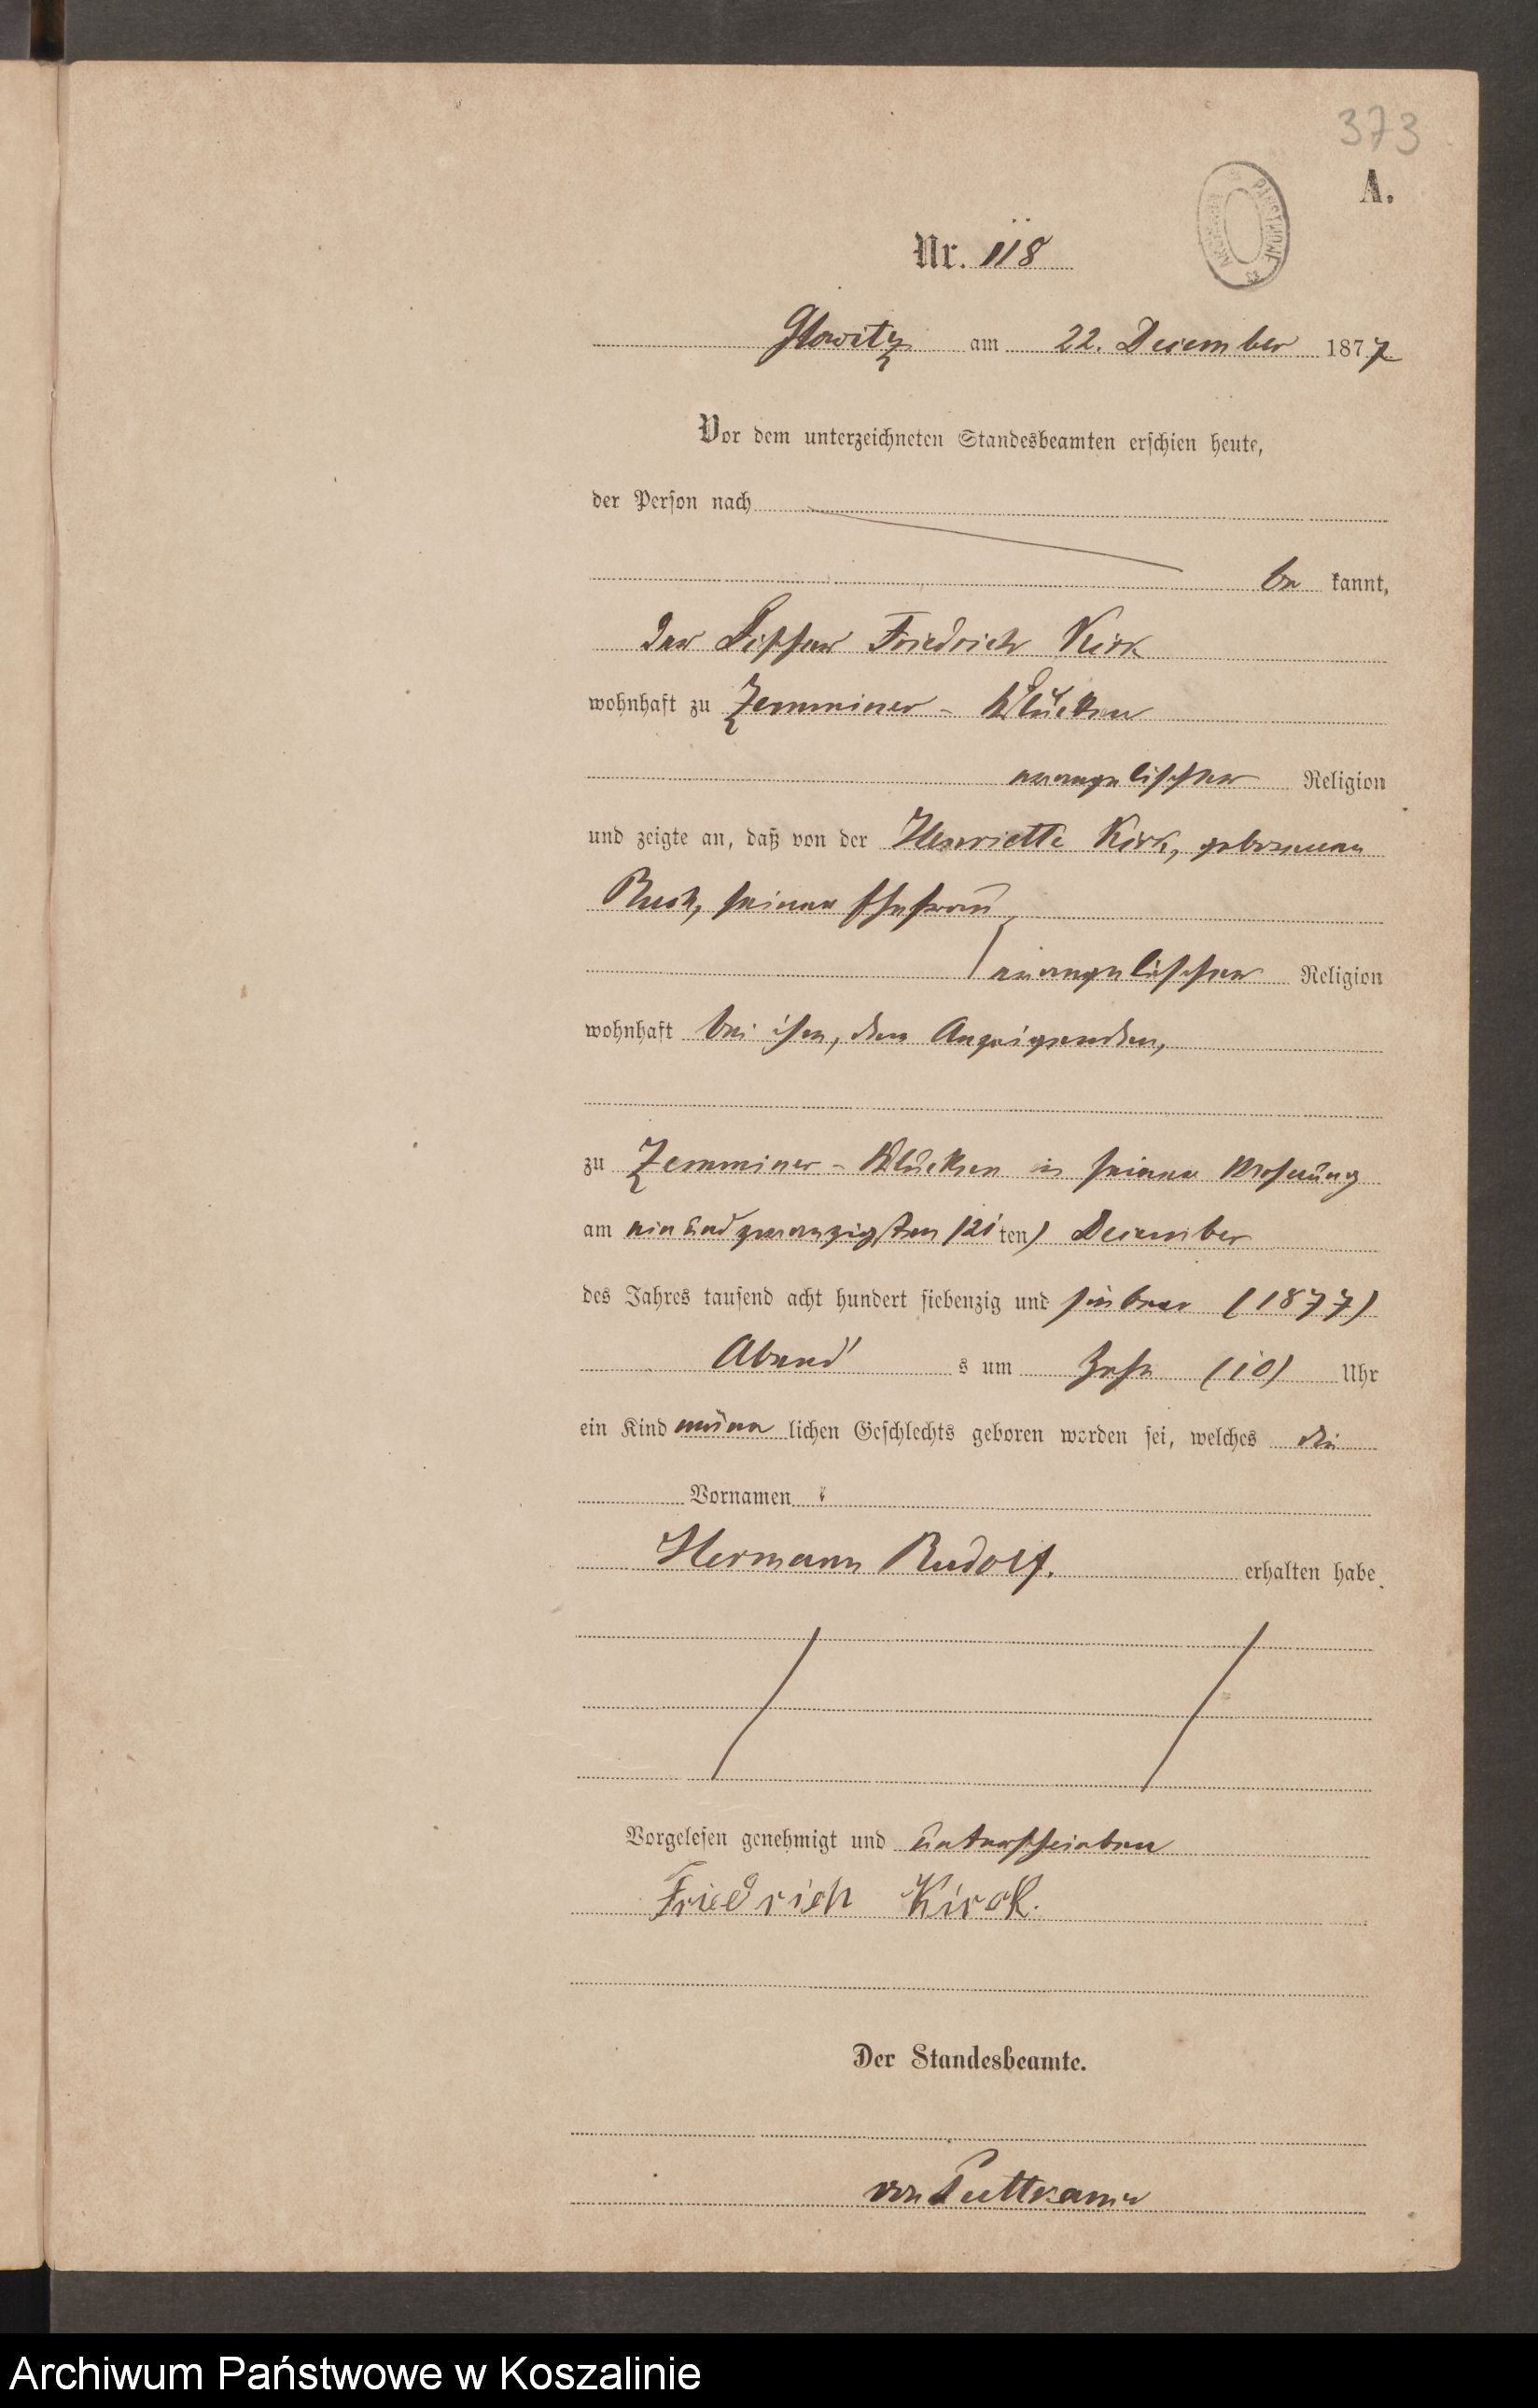 373
A.
ARCHIWUM PAŃSTWOWE
Nr. 118
Glowitz am 22. December 1877
Vor dem unterzeichneten Standesbeamten erschien heute,
der Person nach
be kannt,
der Fischer Friedrich Kirk
wohnhaft zu Zemminer - Klucken
evangelischer Religion
und zeigte an, daß von der Henriette Kirk, geborenen
Ruch, seiner Ehefrau
evangelischer Religion
wohnhaft bei ihm, dem Anzeigenden,
zu Zemminer - Klucken in seiner Wohnung
am ein und zwanzigsten (21ten) December
des Jahres tausend acht hundert siebenzig und sieben (1877)
Abend s um Zehn (10) Uhr
ein Kind männ lichen Geschlechts geboren worden sei, welches die
Vornamen
Hermann Rudolf. erhalten habe.
Vorgelesen genehmigt und unterschrieben
Friedrich Kirck.
Der Standesbeamte.
von Puttkamer
Archiwum Państwowe w Koszalinie